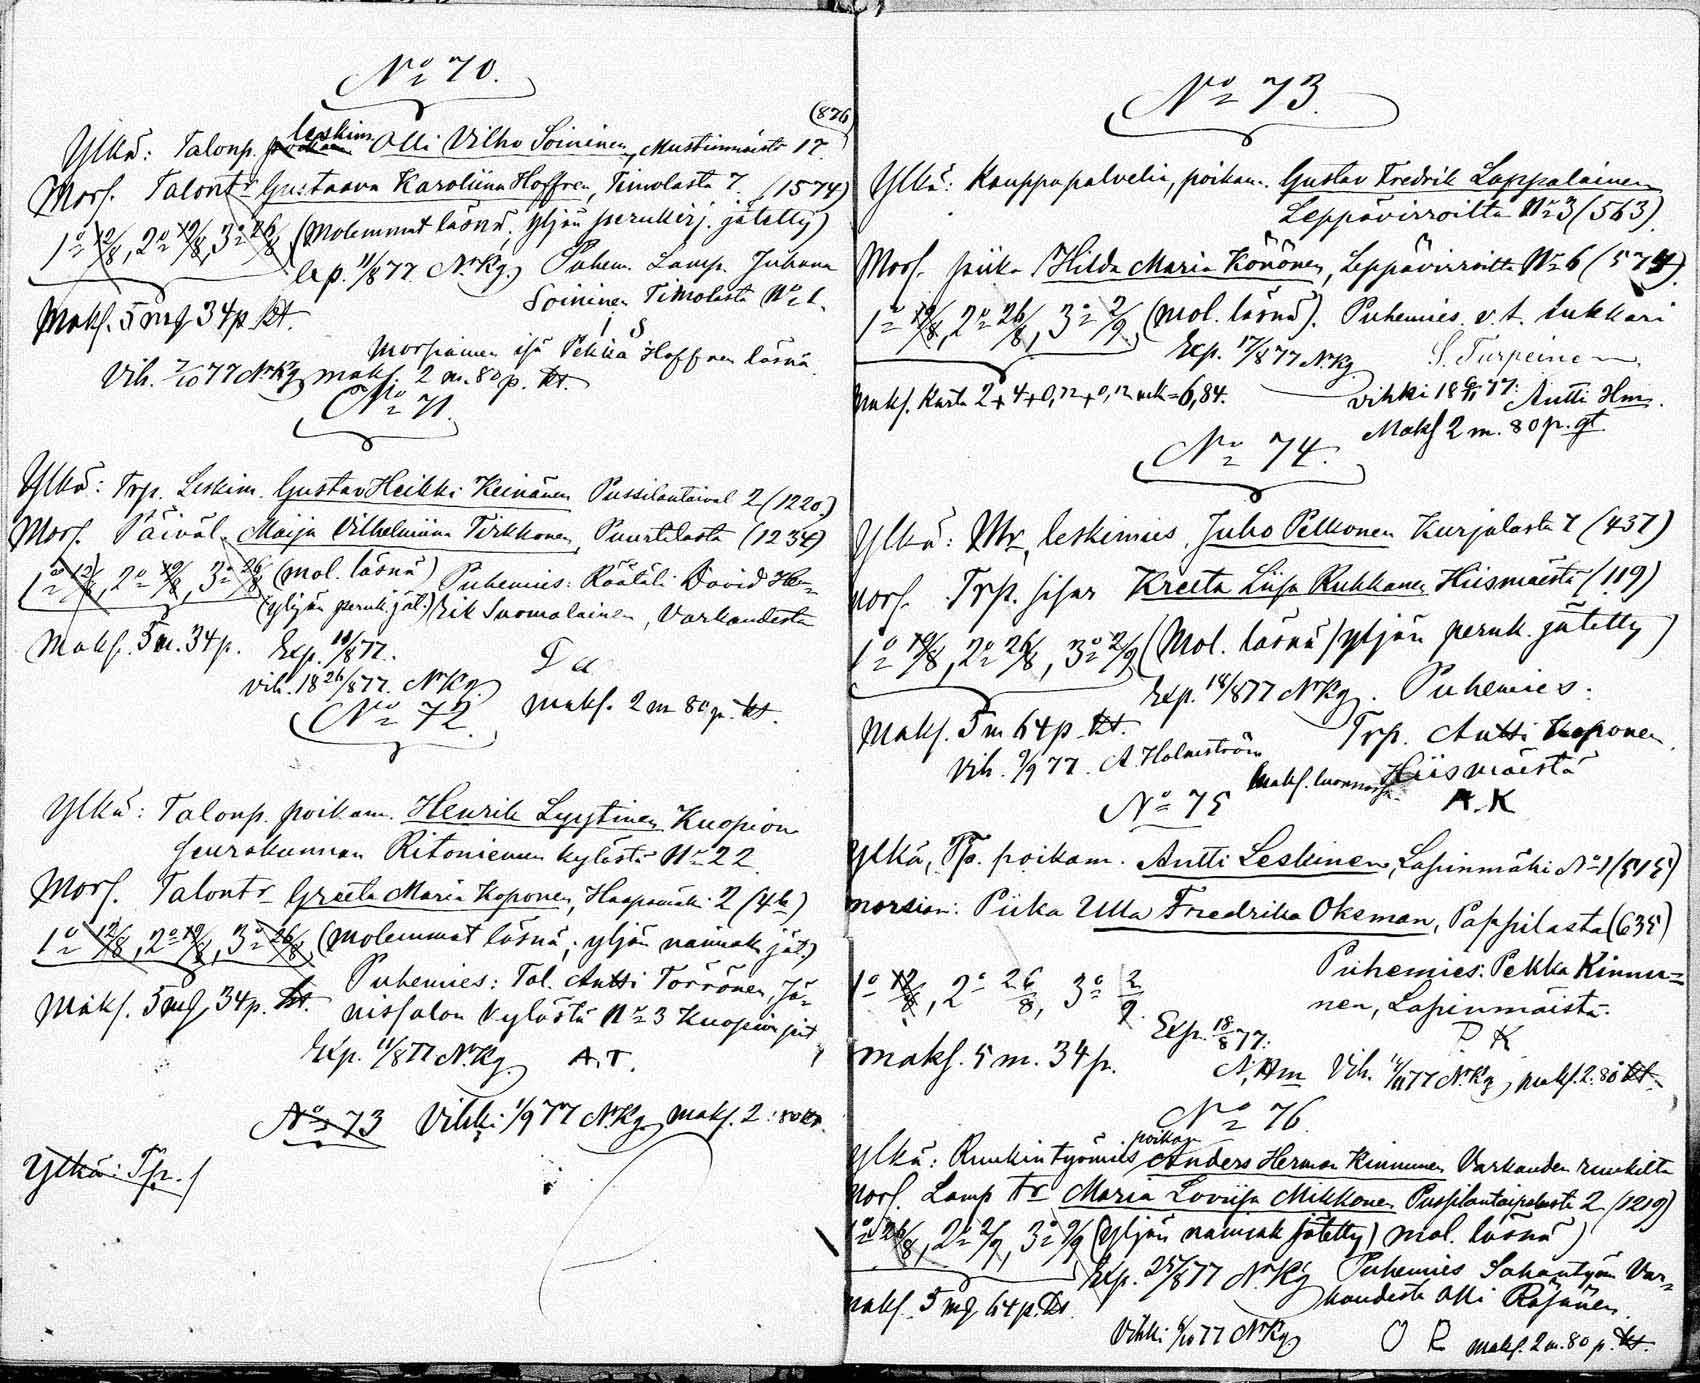 No 70.
(826)
Ylkä: Talonp. leskim. Olli Vilho Soininen, Mustinmäistä 17.
Mors. Talontr Gustaava Karoliina Hoffren, Timolasta 7. (1574)
1o 12/8, 2o 19/8, 3o 26/8 (Molemmat läsnä, yljän perukirj. jätetty)
Exp. 11/8 77 N.Kg. Puhem. Lamp. Juhana
Soininen Timolasta No 1.
Maks. 5 m 34 p. kt.
I S
Morsiamen isä Pekka Hoffren läsnä.
Vih. 7/10 77 N.Kg. maks. 2 m. 80 p. kt.
No 71.
Ylkä: Trp. Leskim. Gustav Heikki Keinänen Pussilantaival 2 (1220)
Mors. Päiväl. Maija Vilhelmiina Tirkkonen, Puurtilasta (1234)
1o 12/8, 2o 19/8, 3o 26/8 (mol. läsnä) Puhemies: Räätäli David Hen-
(yljän peruk. jät.) rik Suomalainen, Varkaudesta
Maks. 5 m. 34 p. Exp. 11/8 77.
Vih. 18 26/8 77. N.Kg. maks. 2 m 80 p. kt.
No 72.
Ylkä: Talonp. poikam. Henrik Lyytinen Kuopion
seurakunnan Ritoniemen kylästä No 22
Mors. Talontr Greeta Maria Koponen, Haapamäki 2 (46)
1o 12/8, 2o 19/8, 3o 26/8 (molemmat läsnä; yljän naimak. jät.)
Puhemies: Tal. Antti Törrönen, Jä-
Maks. 5 m 34 p. kt. nissalon kylästä No 3 Kuopion pit.
Exp. 11/8 77 N.Kg. A.T.
No 73 Vihki 1/9 77 N.Kg. maks. 2:80 kt.
Ylkä: Tp.
No 73.
Ylkä: Kauppapalvelia, poikam. Gustav Fredrik Lappalainen
Leppävirroilta No 3 (563)
Mors. piika Hilda Maria Könönen, Leppävirroilta No 6 (574)
1o 19/8, 2o 26/8, 3o 2/9 (mol. läsnä). Puhemies v.t. lukkari
Exp. 17/8 77 N.Kg. S. Turpeinen
Maks. Kasta 2+4+0,72+0,12 mk=6,84. vihki 18 6/11 77: Antti Hm.
Maks 2 m. 80 p. qt.
No 74.
Ylkä: Mr, leskimies, Juho Pelkonen Kurjalasta 7 (437)
Mors. Trp. sisar Kreeta Liisa Ruhkanen Hiismäestä (119)
1o 19/8, 2o 26/8, 3o 2/9 (Mol. läsnä) yljän peruk. jätetty)
Exp. 18/8 77 N.Kg. Puhemies:
Maks. 5 m 64 p kt. Trp. Antti Koponen
Vih. 9/9 77. A. Holmström Hiismäestä
maks. luonnossa. A.K
No 75
Ylkä, Tp. poikam. Antti Leskinen, Lapinmäki No 1 (515)
morsian: Piika Ulla Friedrika Oksman, Pappilasta (635)
Puhemies: Pekka Kinnu-
1o 12/8, 2o 26/8, 3o 2/9. nen, Lapinmäistä.
Exp. 18/8 77: P K
maks. 5 m. 34 p. N. Hm Vih. 77 N.Kg, maks. 2:80 kt.
No 76.
poikam
Ylkä: Ruukintyömies Anders Herman Kinnunen Varkauden ruukilta
Mors. Lamp. tr Maria Loviisa Mikkonen Pussilantaipaleesta 2 (1219)
1o 26/8, 2o 2/9, 3o 9/9 (yljän naimak jätetty) mol. läsnä)
Exp. 25/8 77 N.Kg Puhemies Sahantyöm Var-
kaudesta Olli Räsänen
maks. 5 m 64 p. kt.
Vihki 77 N.Kg. O R maks. 2 m. 80 p. kt.